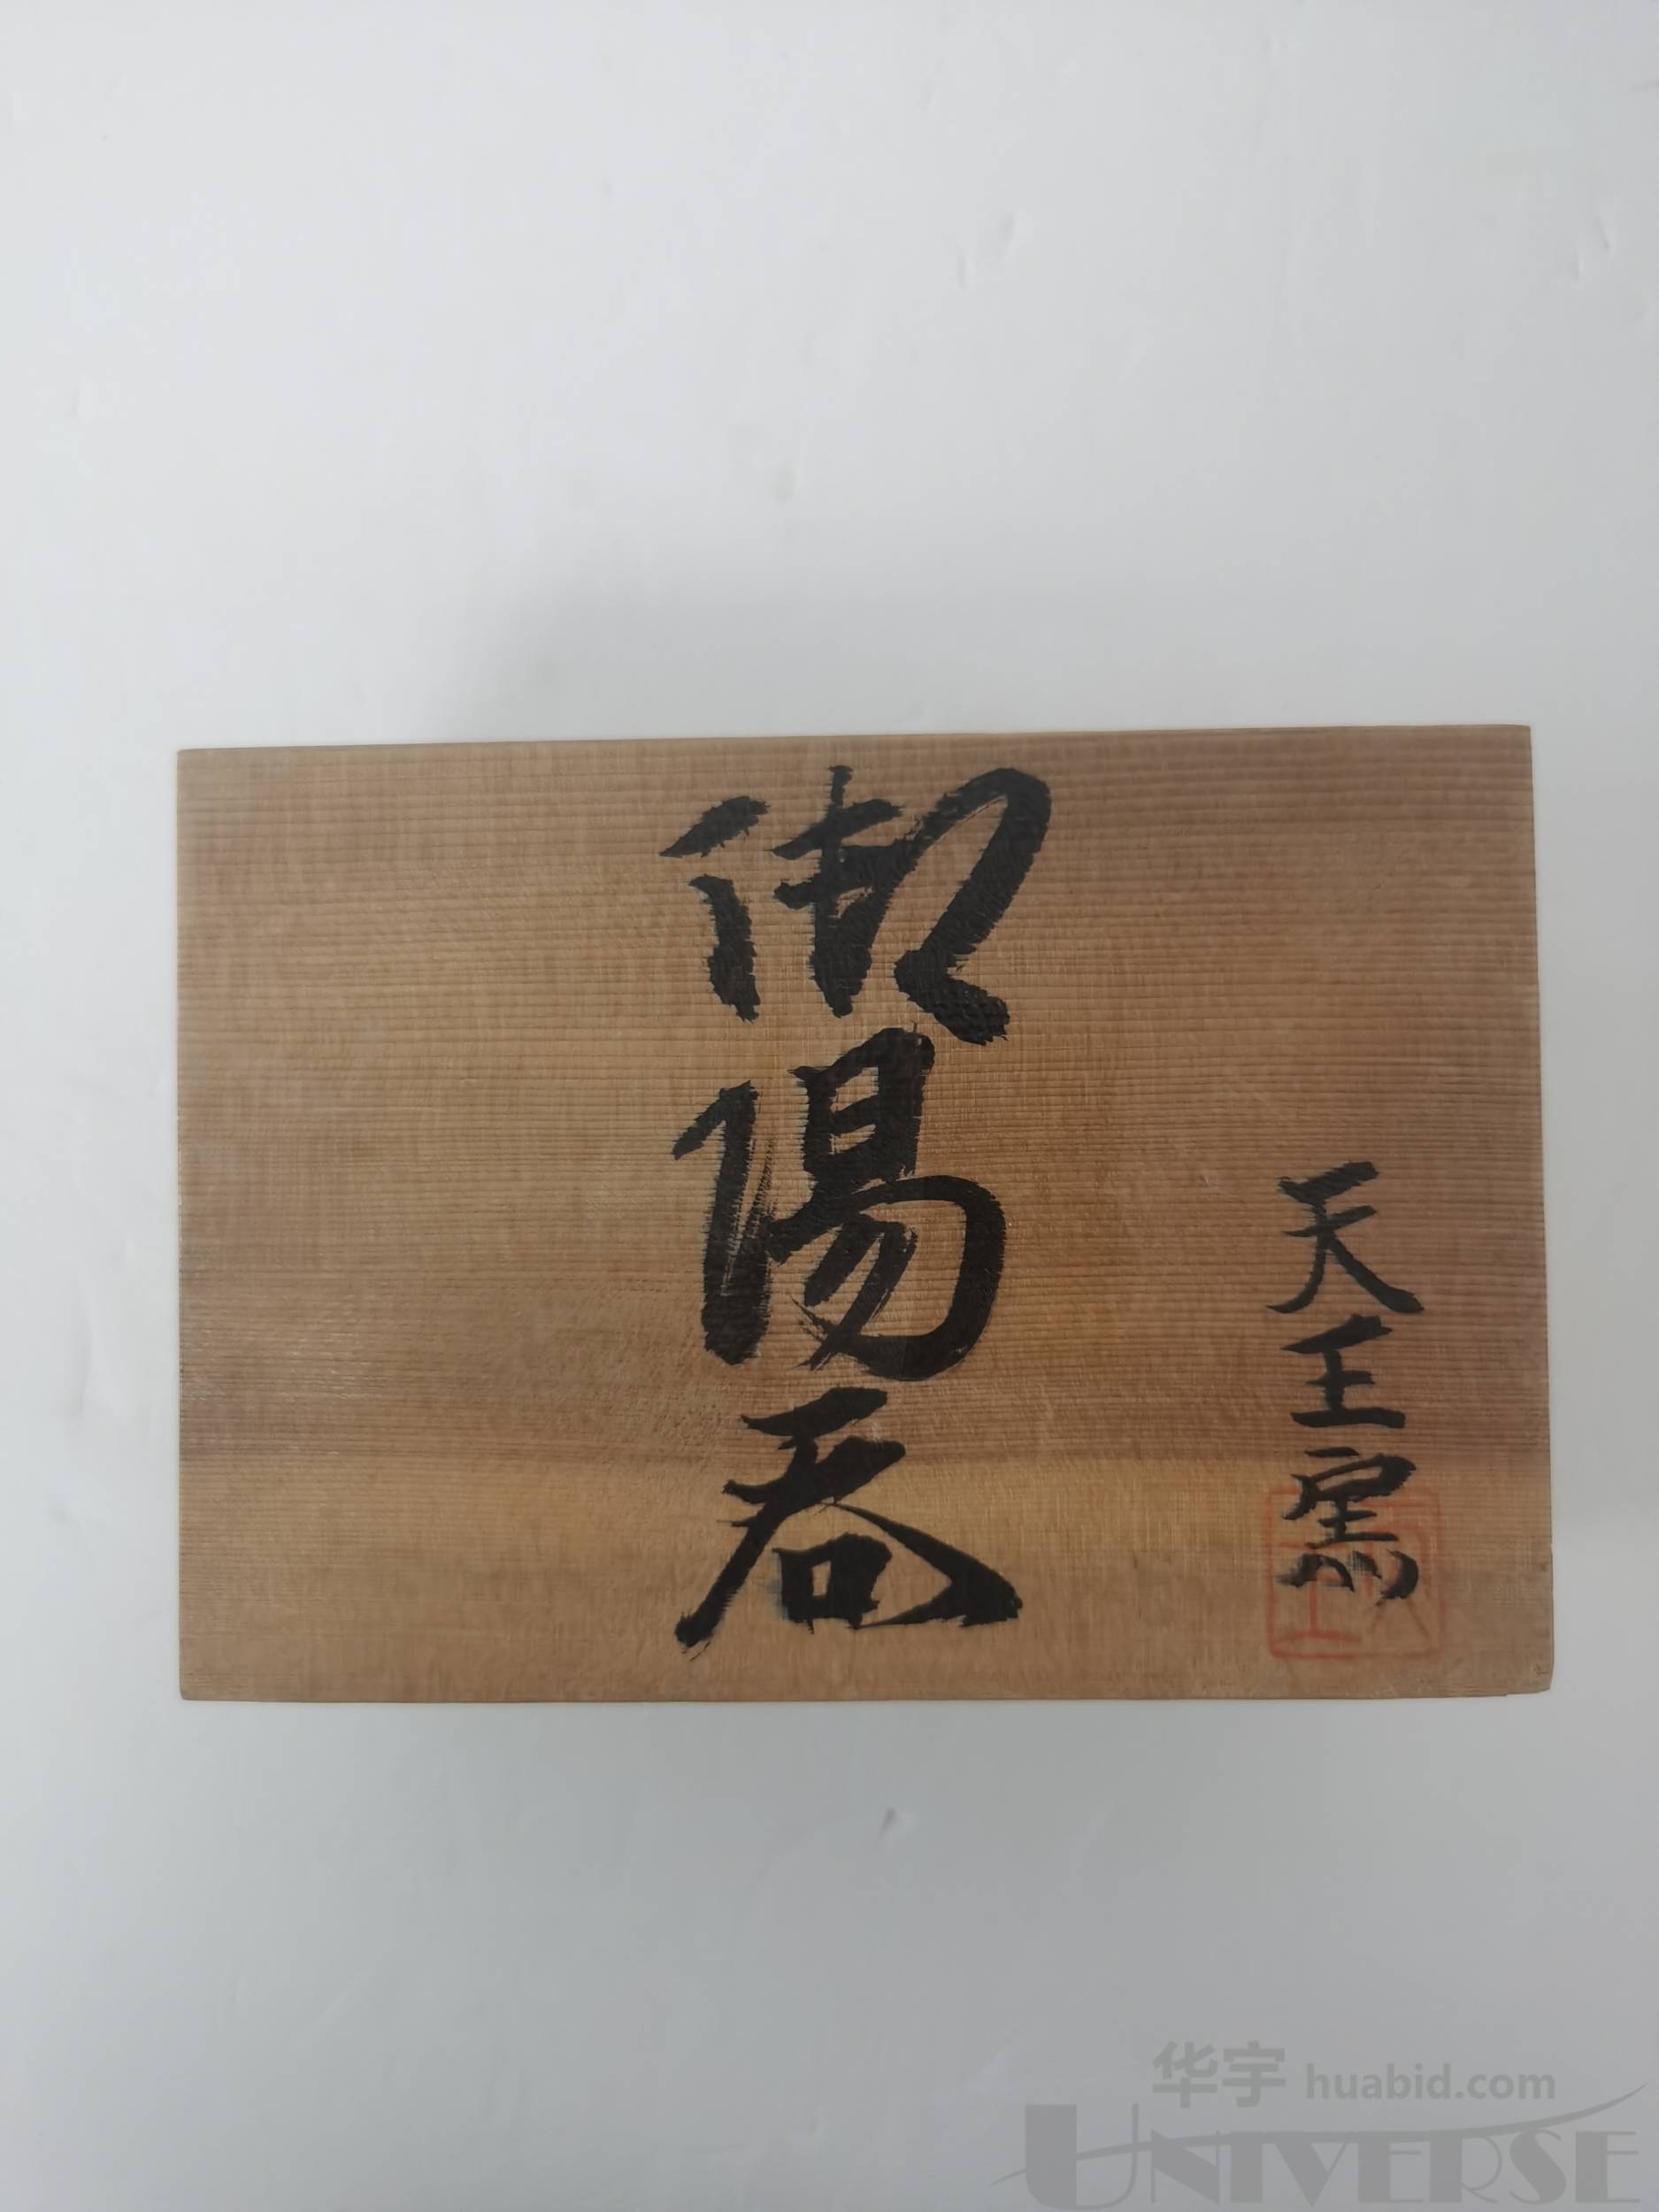 御湯呑
天王窯
华宇 huabid.com
UNIVERSE